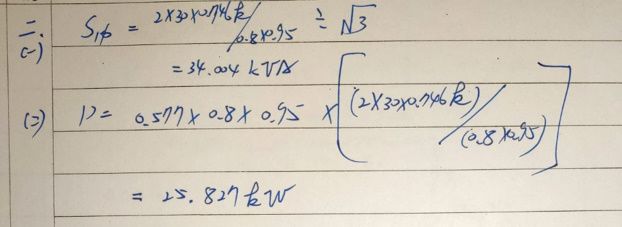 二、
(一) S1φ = 2×30×0.746k/0.8×0.95 ÷ √3
= 34.004 kVA
(二) P = 0.577×0.8×0.95 × [(2×30×0.746k)/(0.8×0.95)]
= 25.827 kW